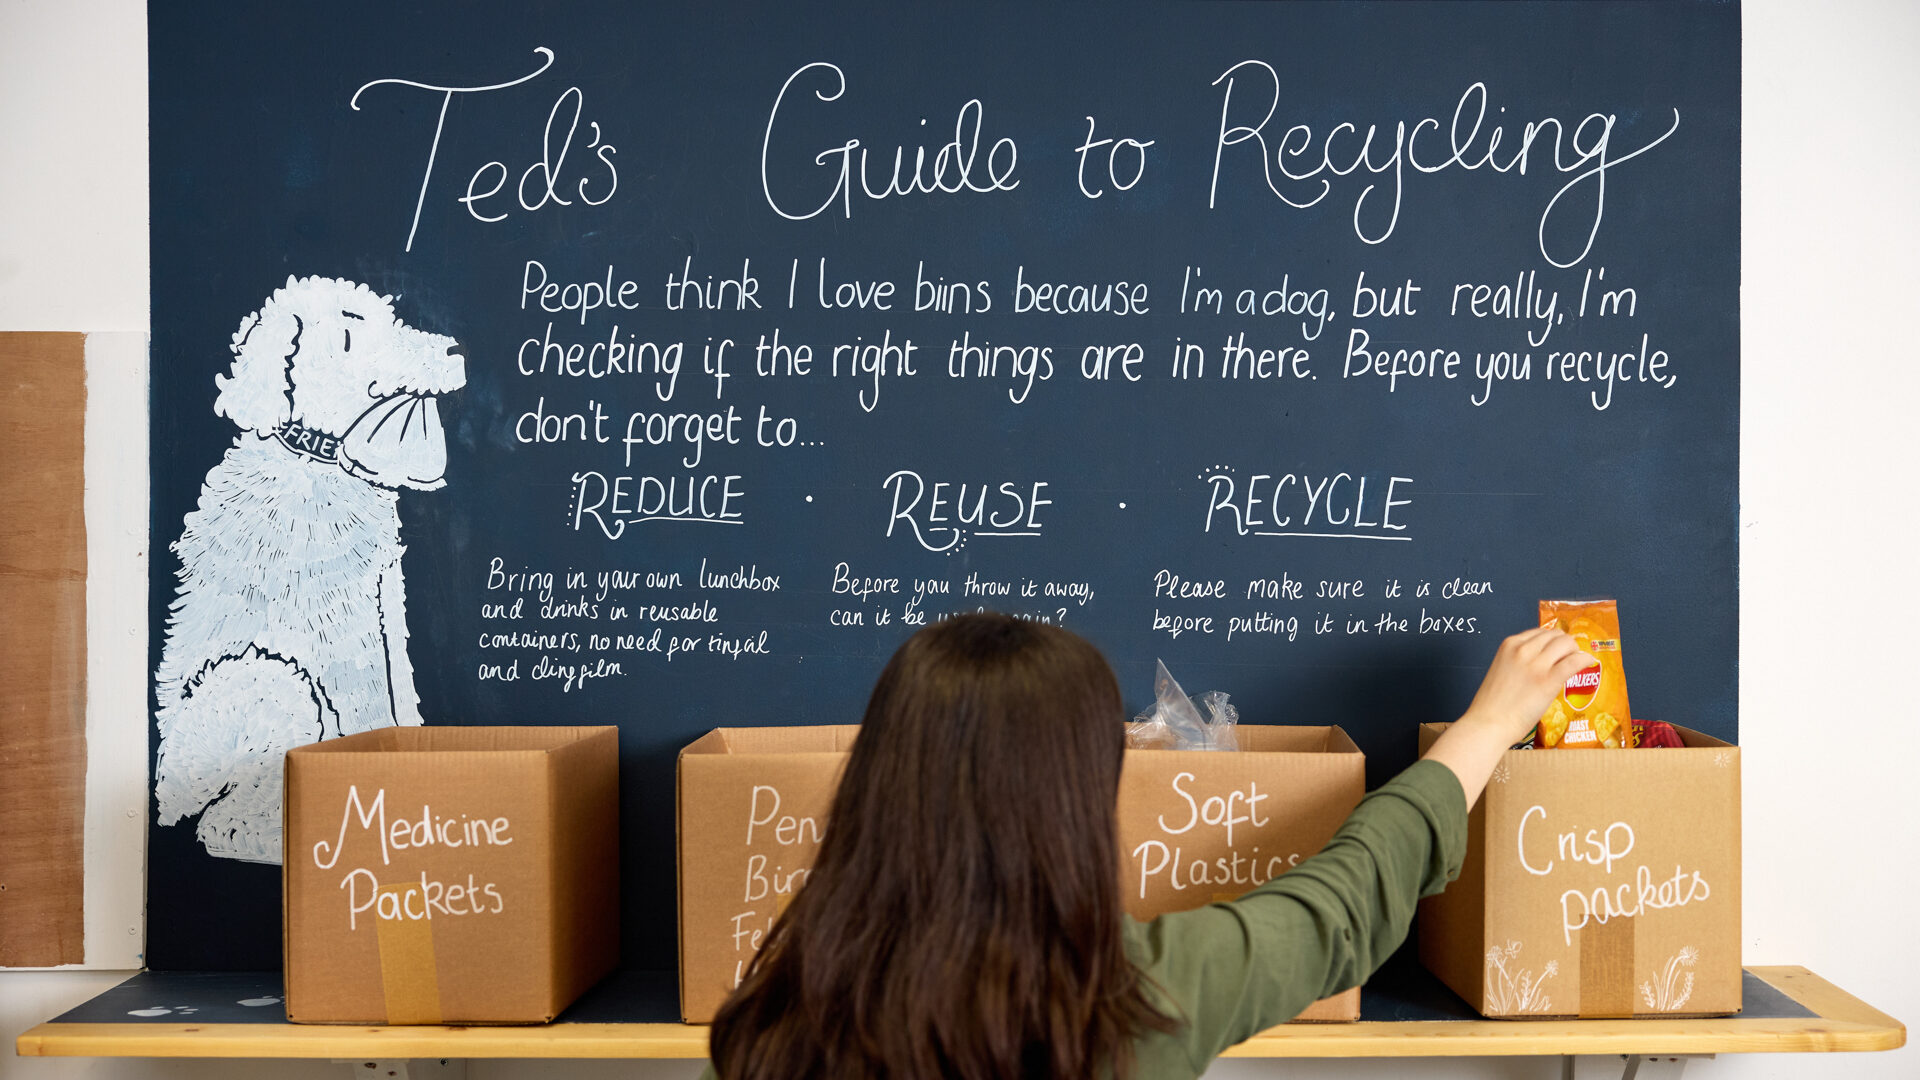 Ted's Guide to Recycling
People think I love bins because I'm a dog, but really, I'm
checking if the right things are in there. Before you recycle,
don't forget to...
REDUCE · REUSE · RECYCLE
Bring in your own lunchbox
and drinks in reusable
containers, no need for tinfoil
and clingfilm.
Before you throw it away,
can it be
Please make sure it is clean
before putting it in the boxes.
FRIE
Medicine
Packets
Pen
Soft
Plastics
Crisp
packets
WALKERS
ROAST
CHICKEN